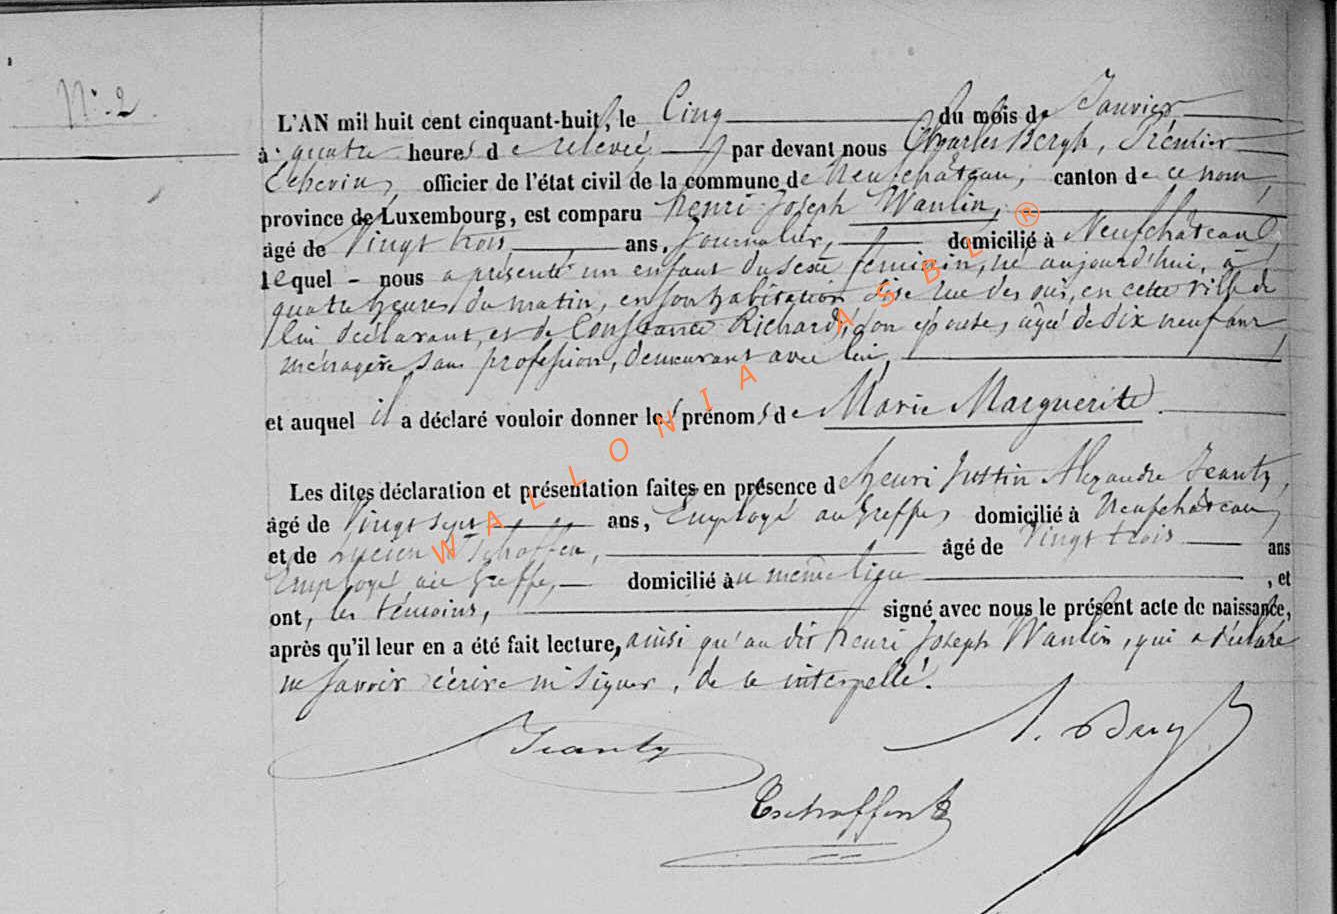 N° 2
L'AN mil huit cent cinquant-huit, le Cinq du mois de Janvier
à quatre heures de relevée, par devant nous Charles Bergh, Premier
Echevin, officier de l'état civil de la commune de Neufchâteau, canton de ce nom,
province de Luxembourg, est comparu Henri Joseph Wanlin,
âgé de Vingt trois ans, Journalier, domicilié à Neufchâteau,
lequel - nous a présenté un enfant du sexe féminin, né aujourd'hui, à
quatre heures du matin, en son habitation sise rue des , en cette ville de
lui déclarant, et de Constance Richard, son épouse, âgée de dix neuf ans
ménagère, sans profession, demeurant avec lui,
et auquel il a déclaré vouloir donner les prénoms de Marie Marguerite.
Les dites déclaration et présentation faites en présence de Henri Justin Alexandre Jeanty,
âgé de Vingt sept ans, Employé au Greffe, domicilié à Neufchâteau,
et de Lucien Tschoffen, âgé de Vingt trois ans
Employé au Greffe, domicilié au même lieu , et
ont, les témoins, signé avec nous le présent acte de naissance,
après qu'il leur en a été fait lecture, ainsi qu'au dit Henri Joseph Wanlin, qui a déclaré
ne savoir écrire ni signer, de ce interpellé.
Jeanty
Tschoffen
WALLONIA ASBL ®